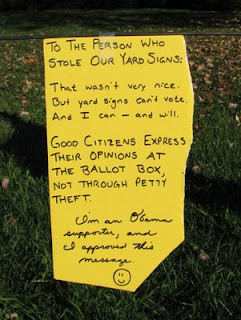 TO THE PERSON WHO
STOLE OUR YARD SIGNS:
That wasn't very nice.
But yard signs can't vote.
And I can — and will.
GOOD CITIZENS EXPRESS
THEIR OPINIONS AT
THE BALLOT BOX,
NOT THROUGH PETTY
THEFT.
I'm an Obama
supporter, and
I approved this
message.